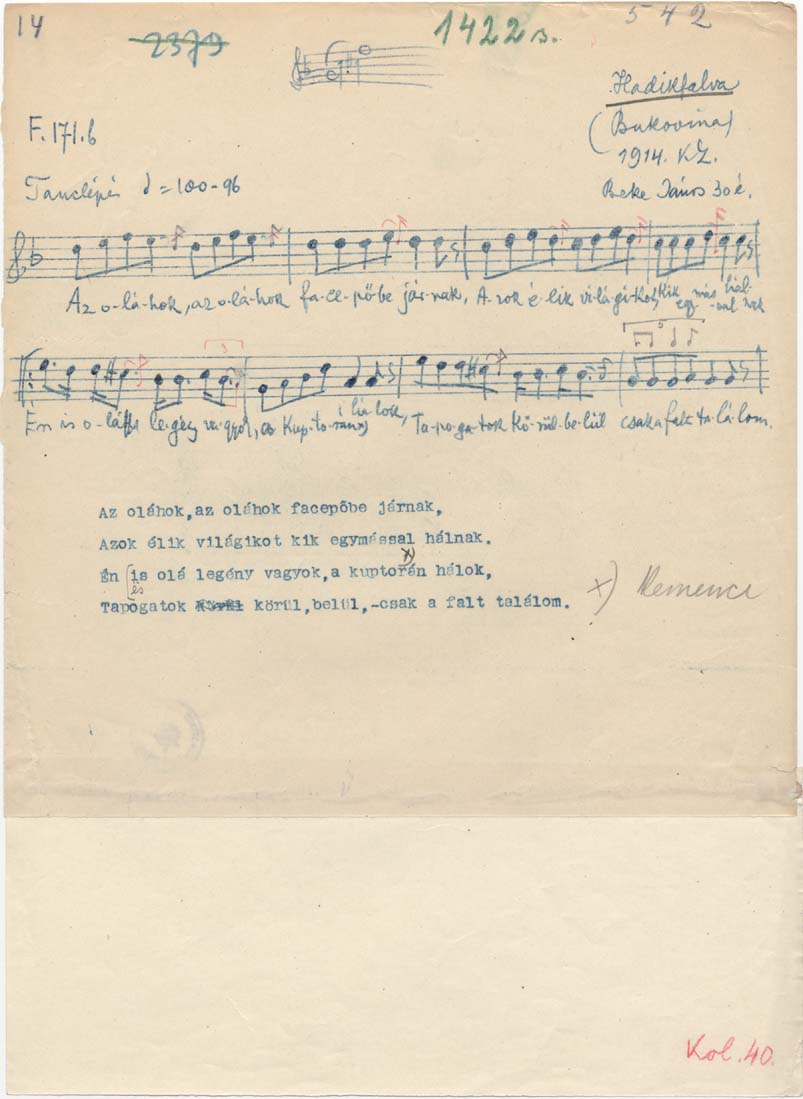 14
2379
1422 s.
542
Hadikfalva
(Bukovina)
1914. K.Z.
F. 171.b
Tánclépés = 100-96
Beke János 30 é.
Az o-lá-hok, az o-lá-hok fa-ce-pő-be jár-nak, A-zok é-lik vi-lá-gi-kot, kik egy-más-sal hál-nak
Én is o-lá le-gény va-gyok, a Kup-to-rán há-lok, Ta-po-ga-tok kö-rül-be-lül csak a falt ta-lá-lom.
Az oláhok, az oláhok facepőbe járnak,
Azok élik világikot kik egymással hálnak.
x)
Én is olá legény vagyok, a kuptorán hálok,
és
Tapogatok körül, belül,-csak a falt találom.
x) Kemence
Kol. 40.